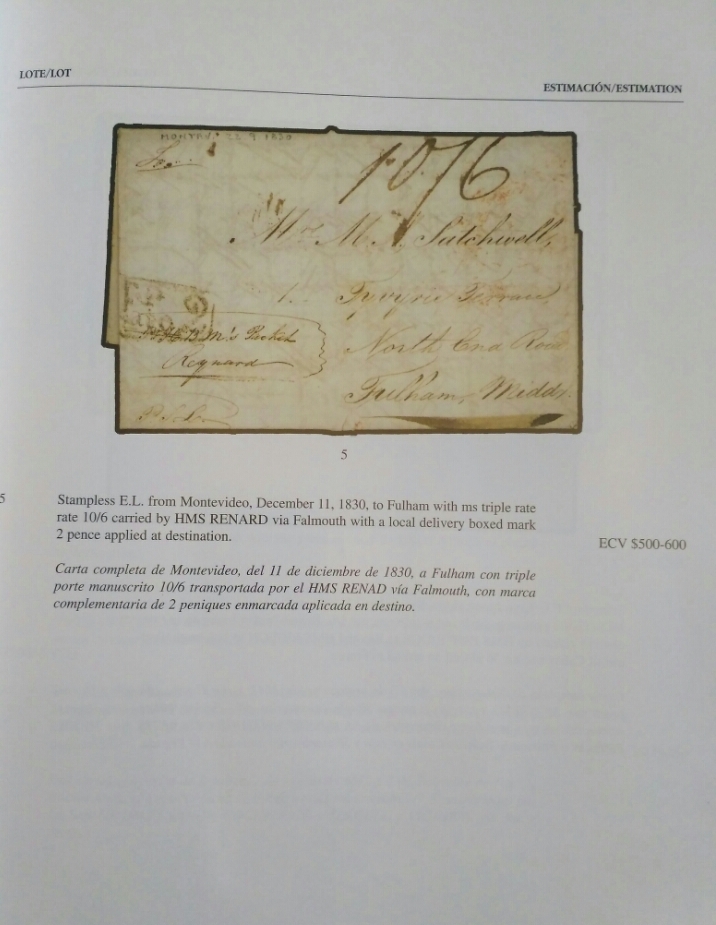 LOTE/LOT
ESTIMACIÓN/ESTIMATION
10/6
Mr M. A. Satchwell,
1.
Terrace
North End Road
Fulham, Middx.
Packet
5
5
Stampless E.L. from Montevideo, December 11, 1830, to Fulham with ms triple rate
rate 10/6 carried by HMS RENARD via Falmouth with a local delivery boxed mark
2 pence applied at destination.
ECV $500-600
Carta completa de Montevideo, del 11 de diciembre de 1830, a Fulham con triple
porte manuscrito 10/6 transportada por el HMS RENAD vía Falmouth, con marca
complementaria de 2 peniques enmarcada aplicada en destino.